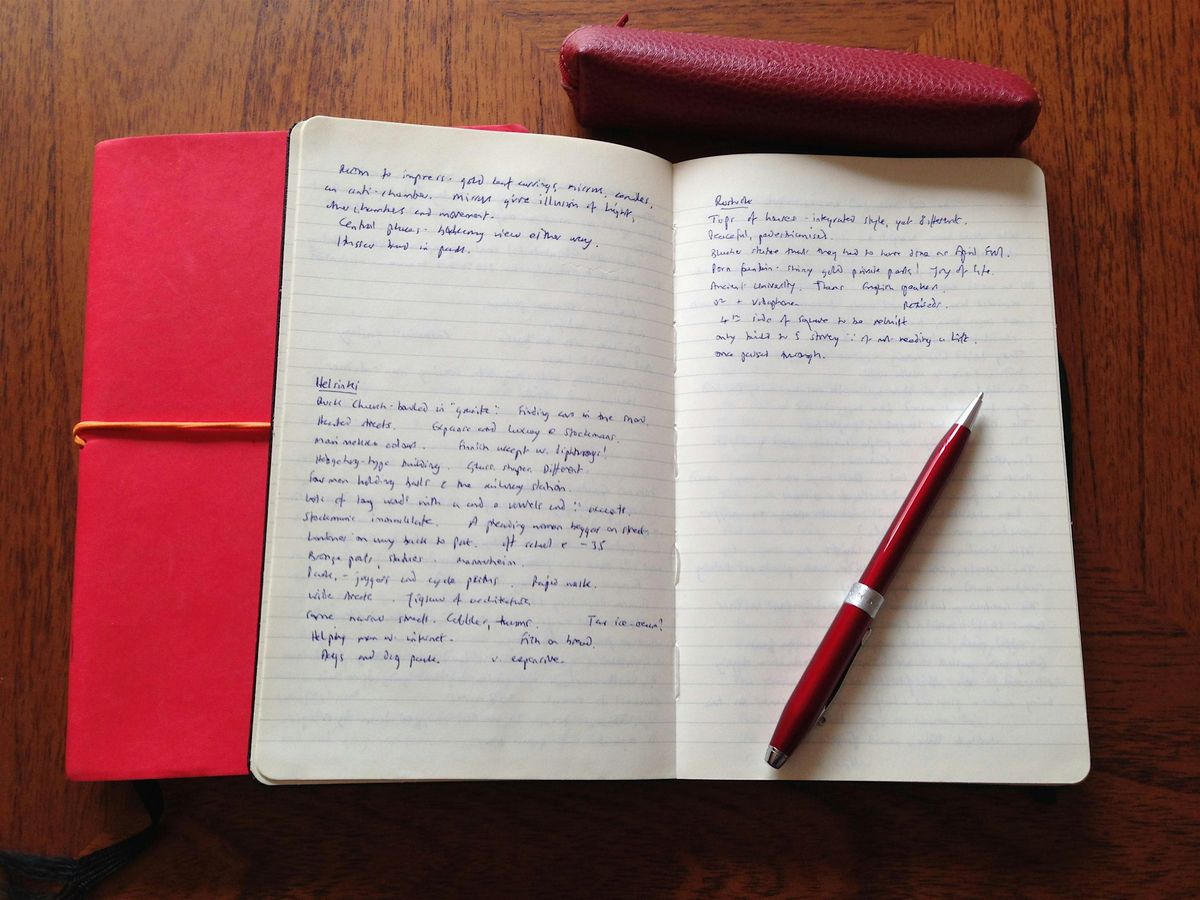 Room to impress - gold leaf carvings, mirrors, candles,
an anti-chamber. Mirrors give illusion of height,
other chambers and movement.
Central places - balcony view either way.
band in park.
Helsinki
Rock Church - banked in "granite". Finding cars in the snow.
Heated streets. Expense and luxury @ Stockmans.
Marimekko colours. Finnish accept w.
Hedgehog-type building. Glass shapes. Different.
Four men holding balls @ the railway station.
Lots of long words with u and o vowels and accents.
Stockmans immaculate. A pleading woman beggar on street.
on way back to port. school @ -35
Bronze poets, statues. Mannerheim.
Park - joggers and cycle paths. Rapid walk.
Wide streets. Jigsaw of architecture
Some narrow streets. Cobbles, trams. Tar ice-cream!
Helpful man w. internet. Fish on bread.
Dogs and dog park. v. expensive.
Rostock
Tops of houses - integrated style, yet different.
Peaceful, pedestrianised.
Blucher statue that they had to have done as April Fool.
Porn fountain - shiny gold private parts! Joy of life.
Ancient University. English speaker.
+ vibraphone.
4th side of square to be rebuilt
only build to 5 storey ∵ of not needing a lift.
once passed through.